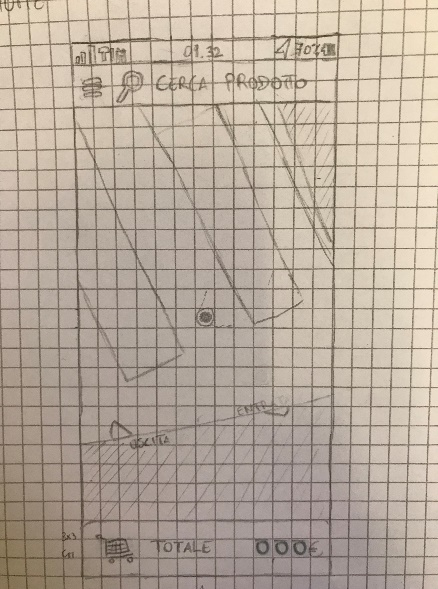 TIM 09.32 70%
CERCA PRODOTTO
ENTRATA
USCITA
TOTALE 000€